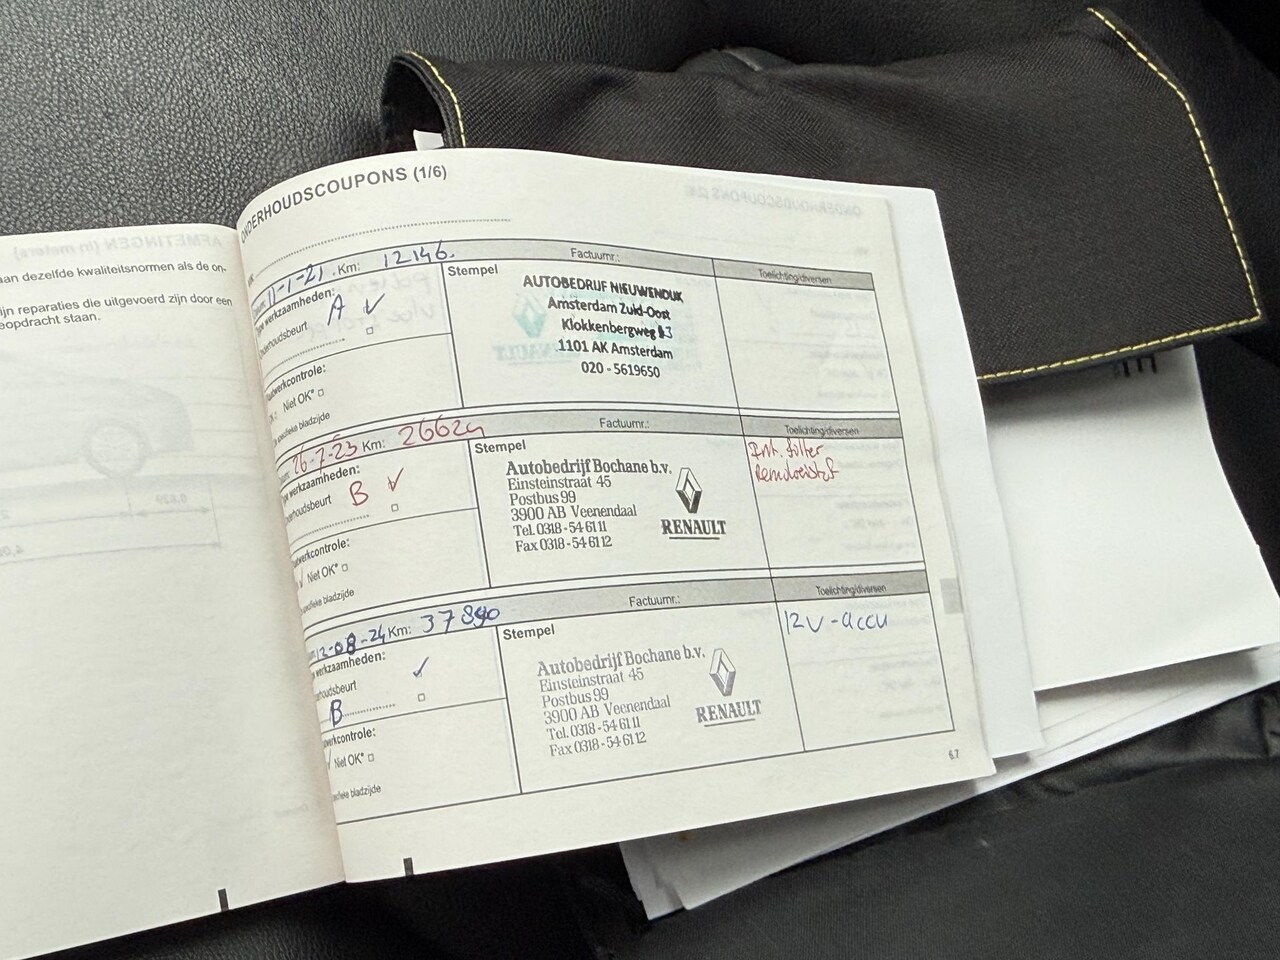 AFMETINGEN (in meters)
aan dezelfde kwaliteitsnormen als de on-
ijn reparaties die uitgevoerd zijn door een
eopdracht staan.
ONDERHOUDSCOUPONS (1/6)
11-1-21 Km: 12146. Factuurnr.: Toelichting/diversen
werkzaamheden:
nderhoudsbeurt A ✓
Stempel
AUTOBEDRIJF NIEUWENDIJK
Amsterdam Zuid-Oost
Klokkenbergweg 13
1101 AK Amsterdam
020 - 5619650
werkcontrole:
Niet OK*
specifieke bladzijde
26-7-23 Km: 26629 Factuurnr.: Toelichting/diversen
werkzaamheden:
derhoudsbeurt B ✓
Stempel
Autobedrijf Bochane b.v.
Einsteinstraat 45
Postbus 99
3900 AB Veenendaal
Tel. 0318 - 54 61 11
Fax 0318 - 54 61 12
RENAULT
Int. filter
Remvloeistof
werkcontrole:
√ Niet OK*
specifieke bladzijde
12-08-24 Km: 37890 Factuurnr.: Toelichting/diversen
werkzaamheden:
rhoudsbeurt ✓
B
Stempel
Autobedrijf Bochane b.v.
Einsteinstraat 45
Postbus 99
3900 AB Veenendaal
Tel. 0318 - 54 61 11
Fax 0318 - 54 61 12
RENAULT
12V-accu
werkcontrole:
√ Niet OK*
ecifieke bladzijde
6.7